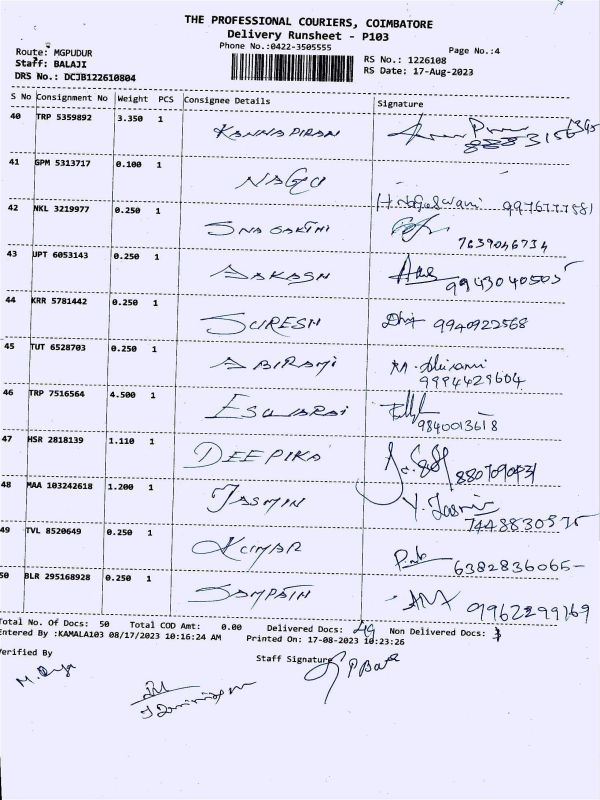 THE PROFESSIONAL COURIERS, COIMBATORE
Delivery Runsheet - P103
Phone No.:0422-3505555
Page No.:4
Route: MGPUDUR
RS No.: 1226108
Staff: BALAJI
RS Date: 17-Aug-2023
DRS No.: DCJB122610804
S No Consignment No Weight PCS Consignee Details Signature
40 TRP 5359892 3.350 1 KANNAPIRAN
41 GPM 5313717 0.100 1 NAGU
9976777581
42 NKL 3219977 0.250 1
7639046734
43 UPT 6053143 0.250 1 AAKASH
9943040505
44 KRR 5781442 0.250 1 SURESH
9940922568
45 TUT 6528703 0.250 1 ABIRAMI M.
9994429604
46 TRP 7516564 4.500 1 ESWARAI
9840013618
47 HSR 2818139 1.110 1 DEEPIKA
48 MAA 103242618 1.200 1 JASMIN Y. Jasmin
7448830575
49 TVL 8520649 0.250 1 KUMAR
6382836065
50 BLR 295168928 0.250 1 SAMPATH
9962299169
Total No. Of Docs: 50 Total COD Amt: 0.00 Delivered Docs: 49 Non Delivered Docs:
Entered By :KAMALA103 08/17/2023 10:16:24 AM Printed On: 17-08-2023 10:23:26
Verified By
Staff Signature